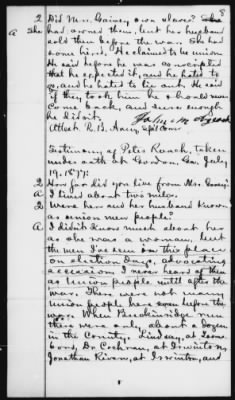 8
Q Did Mrs. Gainey, own slaves?
A She had owned them, but her husband
sold them before the war. She had
some hired. He claimed to be union.
He said before he was conscripted
that he expected it, and he hated to
go, and he hated to lie out. He said
if they took him he would never
come back, and sure enough
he didn't.
Attest. R. B. Avery Spl Com
Testimony of Peter Roach, taken
under oath at Gordon, Ga. July
19. 1877:
Q How far did you live from Mrs. Gainey?
A I lived about two miles.
Q Were her and her husband known
as union men people?
A I didn't know much about her
as she was a woman, but
the men I've seen in this place
on election Days, advocating
secession I never heard of them
as Union people until after the
war. There were not many
Union people here even before the
war. When Breckinridge run
there were only about a dozen
in the County. Lindsay, at
Dr Cochran, at Irwinton,
Jonathan Rivers, at Irwinton, and